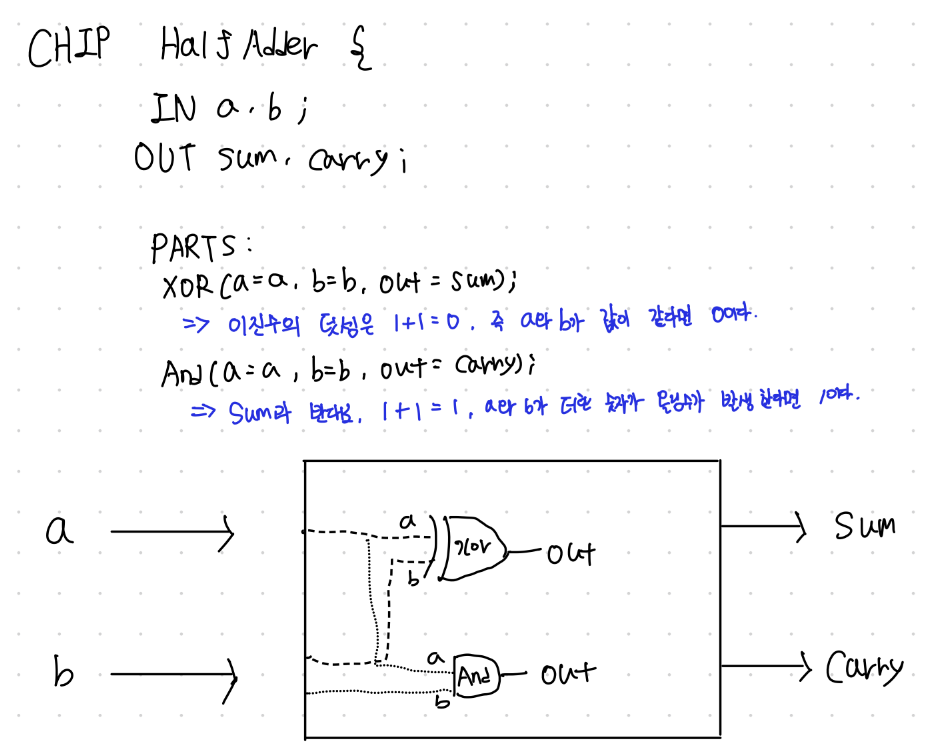 CHIP HalfAdder {
IN a, b ;
OUT sum, carry ;
PARTS :
XOR (a=a, b=b, out = sum) ;
=> 이진수의 덧셈은 1+1=0, 즉 a와 b가 값이 같다면 0이다.
And (a=a, b=b, out = carry) ;
=> Sum과 반대로, 1+1=1, a와 b가 더한 숫자가 올림수가 발생한다면 1이다.
a
a
xor
out
Sum
b
b
a
And
out
Carry
b